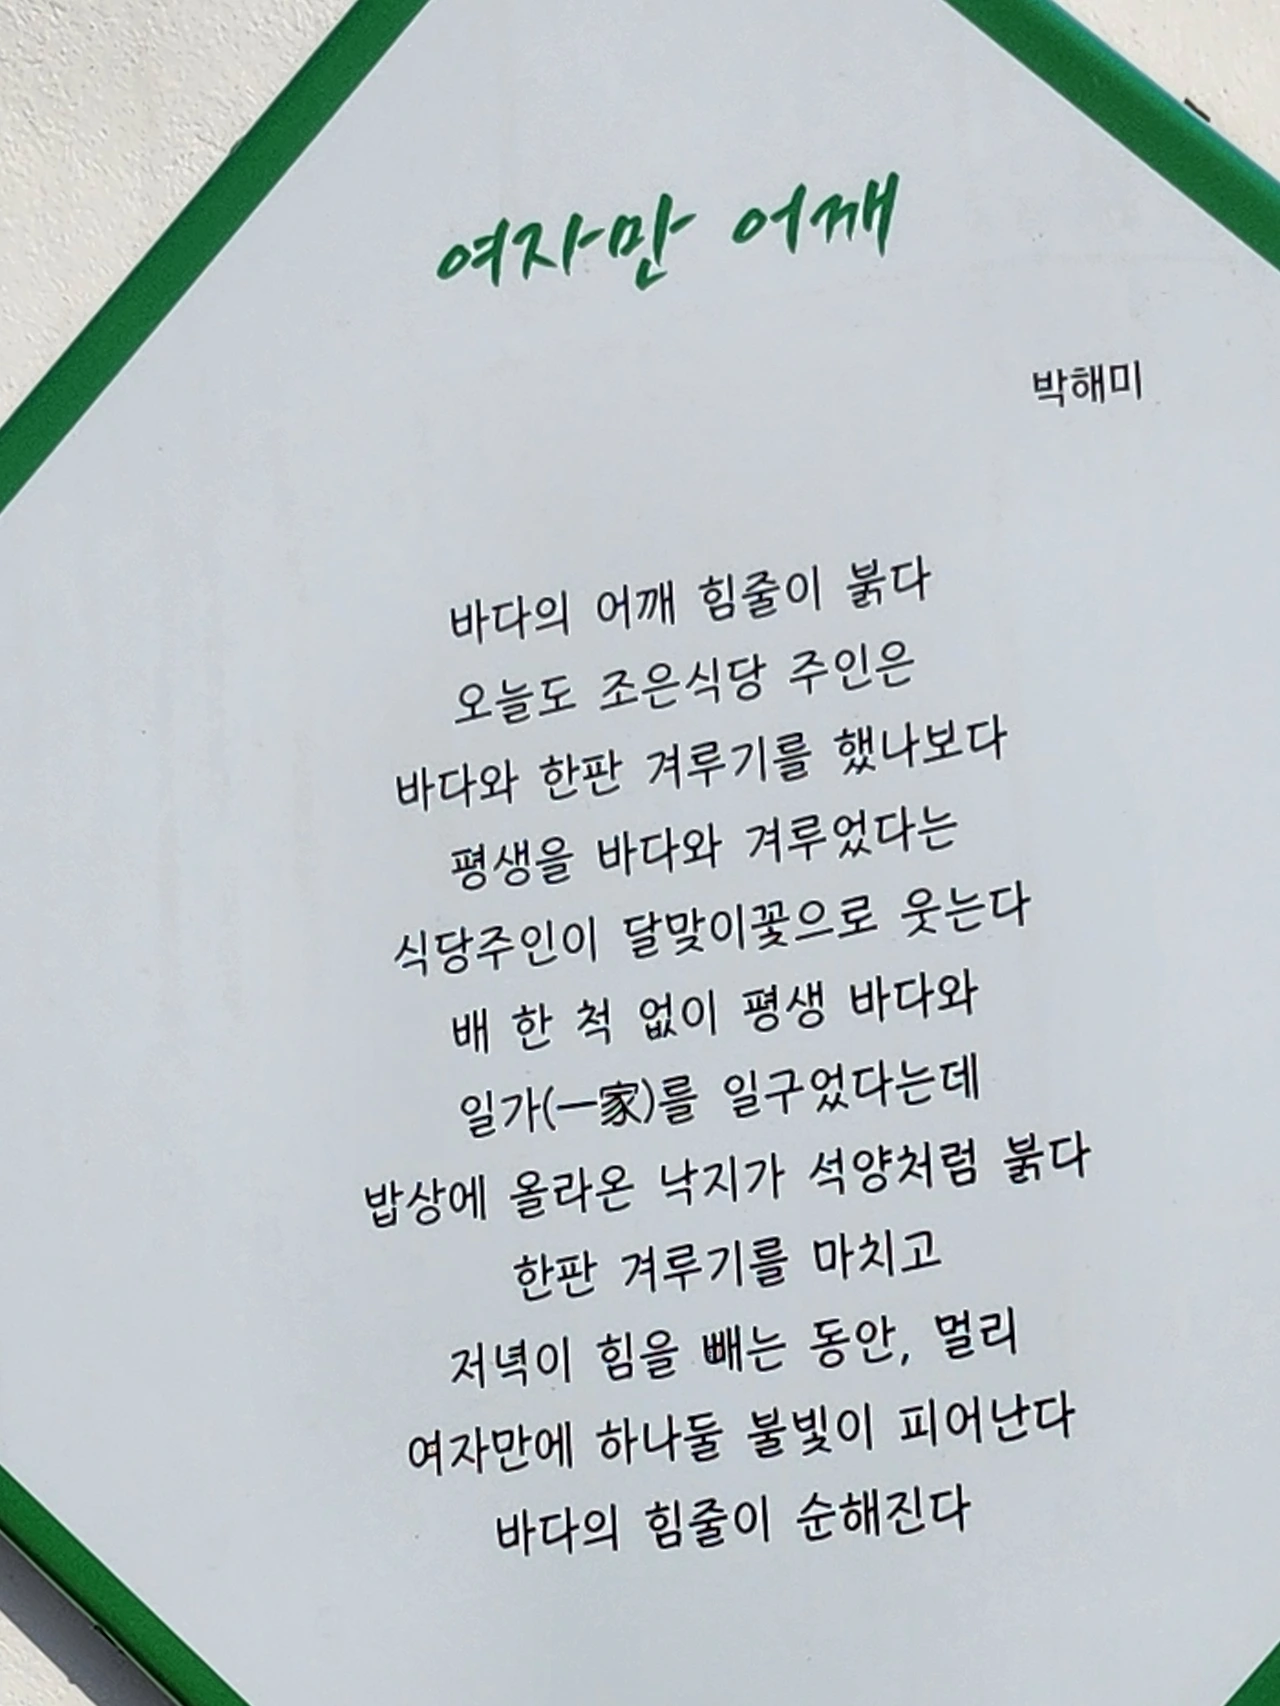 여자만 어깨
박해미
바다의 어깨 힘줄이 붉다
오늘도 조은식당 주인은
바다와 한판 겨루기를 했나보다
평생을 바다와 겨루었다는
식당주인이 달맞이꽃으로 웃는다
배 한 척 없이 평생 바다와
일가(一家)를 일구었다는데
밥상에 올라온 낙지가 석양처럼 붉다
한판 겨루기를 마치고
저녁이 힘을 빼는 동안, 멀리
여자만에 하나둘 불빛이 피어난다
바다의 힘줄이 순해진다